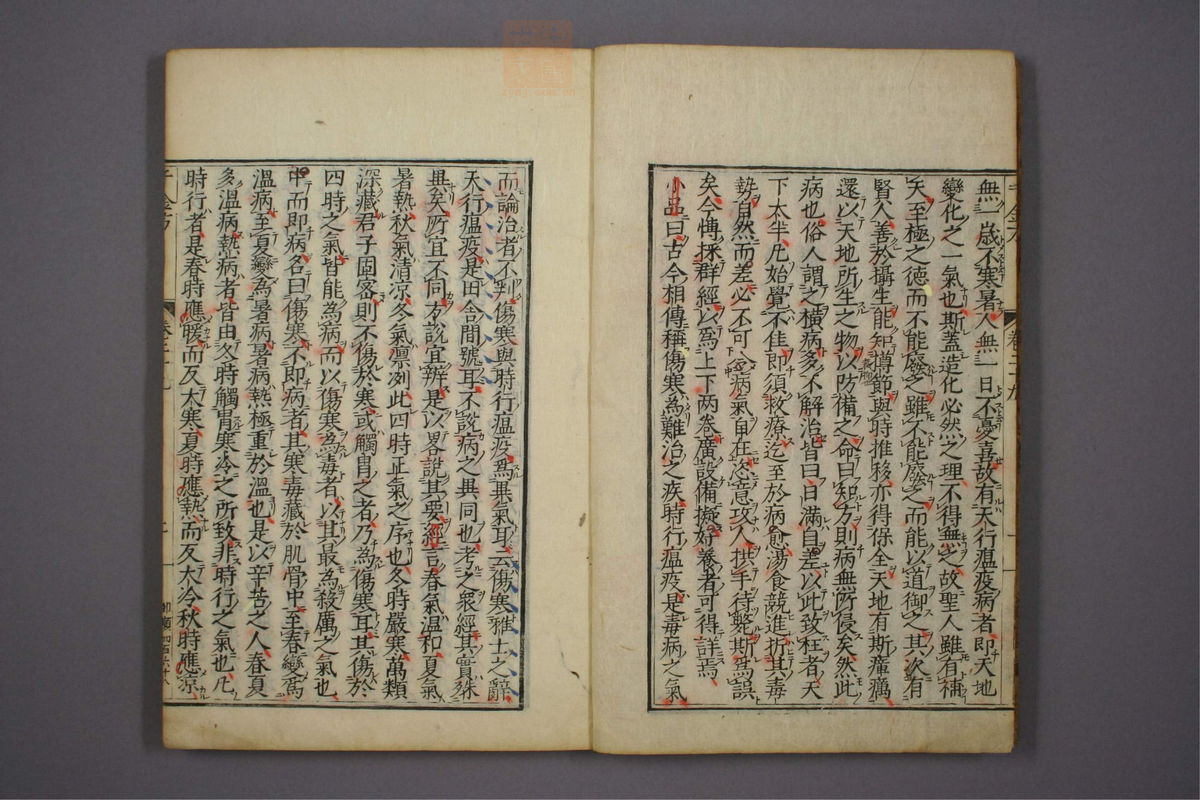 無一歲不寒暑人無一日不憂喜故有天行瘟疫病者即天地
變化之一氣也斯蓋造化必然之理不得無之故聖人雖有補
天至極之德而不能廢之雖不能廢之而能以道御之其次有
賢人善於攝生能知撙節與時推移亦得保全天地有斯瘴癘
還以天地所生之物以防備之命曰知方則病無所侵矣然此
病也俗人謂之橫病多不解治皆曰日滿自差以此致枉者天
下太半凡始覺不佳即須救療迄至於病愈湯食競進折其毒
勢自然而差必不可令病氣自在恣意攻人拱手待斃斯為誤
矣今博採群經以爲上下两卷廣設備擬好養者可得詳焉
小品曰古今相傳稱傷寒為難治之疾時行瘟疫是毒病之氣
而論治者不判傷寒與時行瘟疫為異氣耳云傷寒雅士之辭
天行瘟疫是田舍間號耳不說病之異同也考之衆經其實殊
異矣所宜不同方說宜辨是以畧說其要經言春氣温和夏氣
暑熱秋氣清涼冬氣凛冽此四時正氣之序也冬時嚴寒萬類
深藏君子固密則不傷於寒或觸冒之者乃為傷寒耳其傷於
四時之氣皆能為病而以傷寒為毒者以其最為殺厲之氣也
中而即病名曰傷寒不即病者其寒毒藏於肌骨中至春變爲
溫病至夏變為暑病暑病熱極重於溫也是以辛苦之人春夏
多溫病熱病者皆由冬時觸冒寒冷之所致非時行之氣也凡
時行者是春時應暖而反大寒夏時應熱而反大冷秋時應涼
千金方
卷二十九